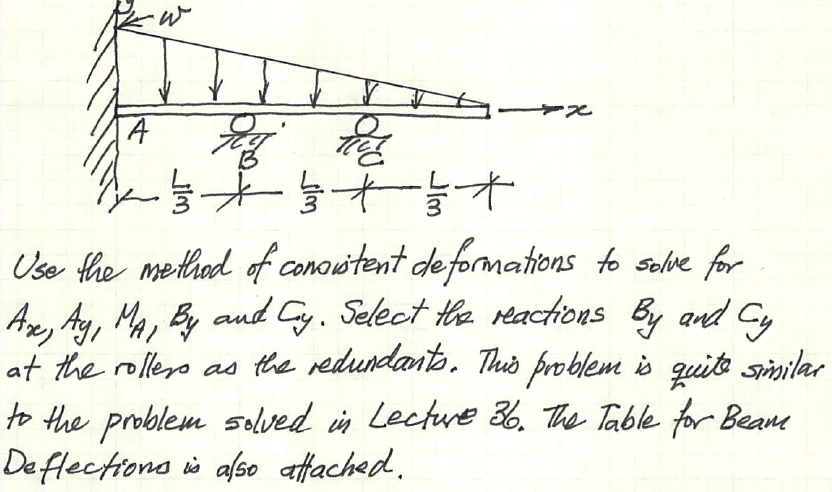 y
w
x
A
B
C
L/3 L/3 L/3
Use the method of consistent deformations to solve for
Ax, Ay, MA, By and Cy. Select the reactions By and Cy
at the rollers as the redundants. This problem is quite similar
to the problem solved in Lecture 36. The Table for Beam
Deflections is also attached.